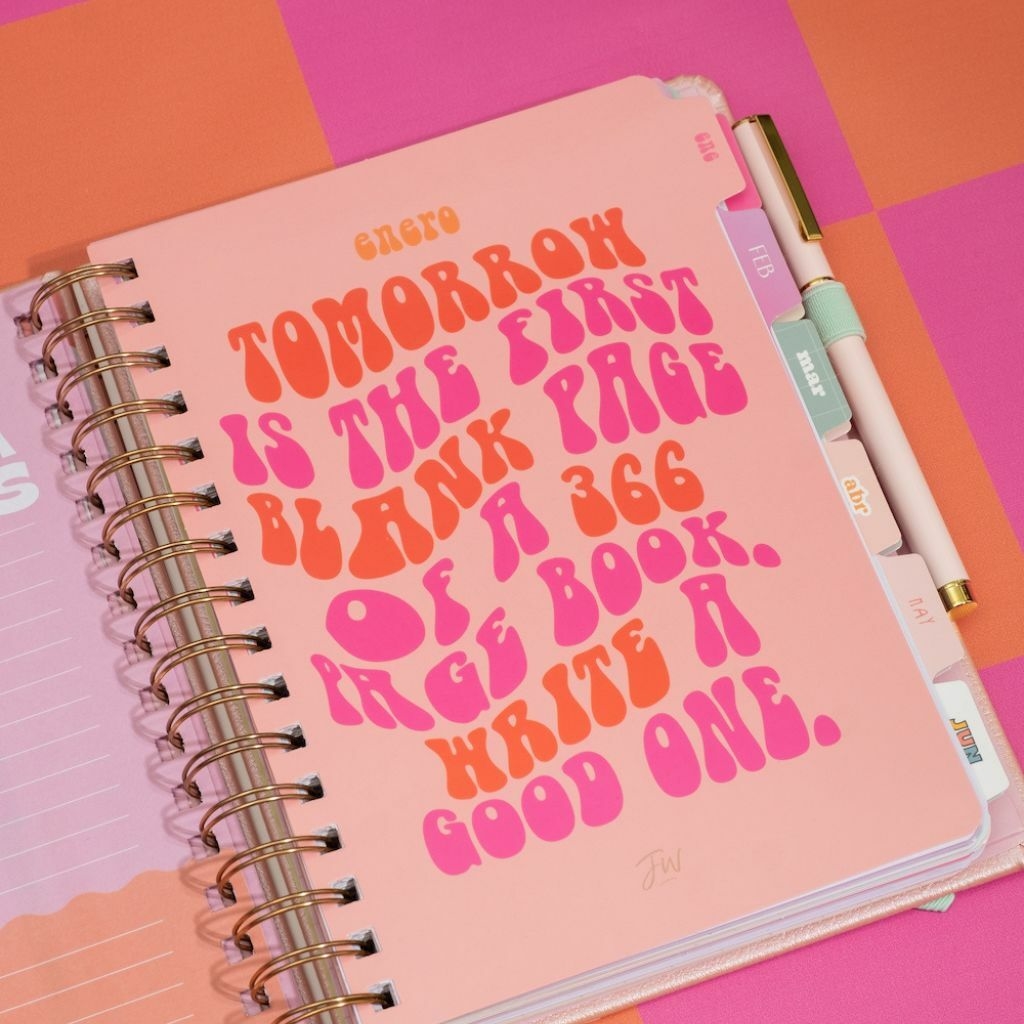 enero
TOMORROW
IS THE FIRST
BLANK PAGE
OF A 366
PAGE BOOK.
WRITE A
GOOD ONE.
JW
ene
FEB
mar
abr
MAY
JUN